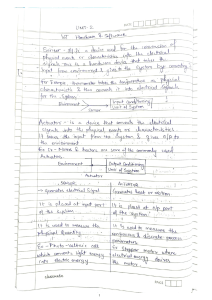 UNIT-2
IoT Hardware & Software
Sensor - It is a device used for the conversion of
physical events or characteristics into the electrical
signals. This is a hardware device that takes the
input from environment & gives to the system by converting it.
For Example - thermometer takes the temperature as physical
characteristic & then converts it into electrical signals
for the System.
Environment
Input conditioning
Unit of System
Sensor
Actuators - is a device that converts the electrical
signals into the physical events or characteristics.
It takes the input from the System & gives o/p to
the environment.
For Ex - Motors & heaters are some of the commonly used
Actuators.
Environment
Output Conditioning
Unit of System
Actuators
Sensor
Actuator
→ Generates electrical signal
Generates heat or motion
It is placed at input port
of the System
It is placed at o/p port
of the System.
It is used to measure the
physical quantity
It is used to measure the
continuous & discrete process
parameters
Ex - Photo-voltaic cell
which converts light energy
into electrical energy
Ex - Stepper motor where
electrical energy
the motor.
PAGE